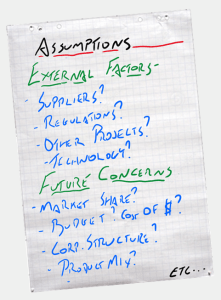 ASSUMPTIONS
EXTERNAL FACTORS-
- SUPPLIERS?
- REGULATIONS?
- OTHER PROJECTS?
- TECHNOLOGY?
FUTURE CONCERNS
- MARKET SHARE?
- BUDGET? COST OF $?
- CORP. STRUCTURE?
- PRODUCT MIX?
ETC...